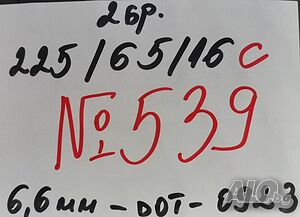 2бр.
225/65/16c
№539
6,6мм-DOT-
ALO.bg